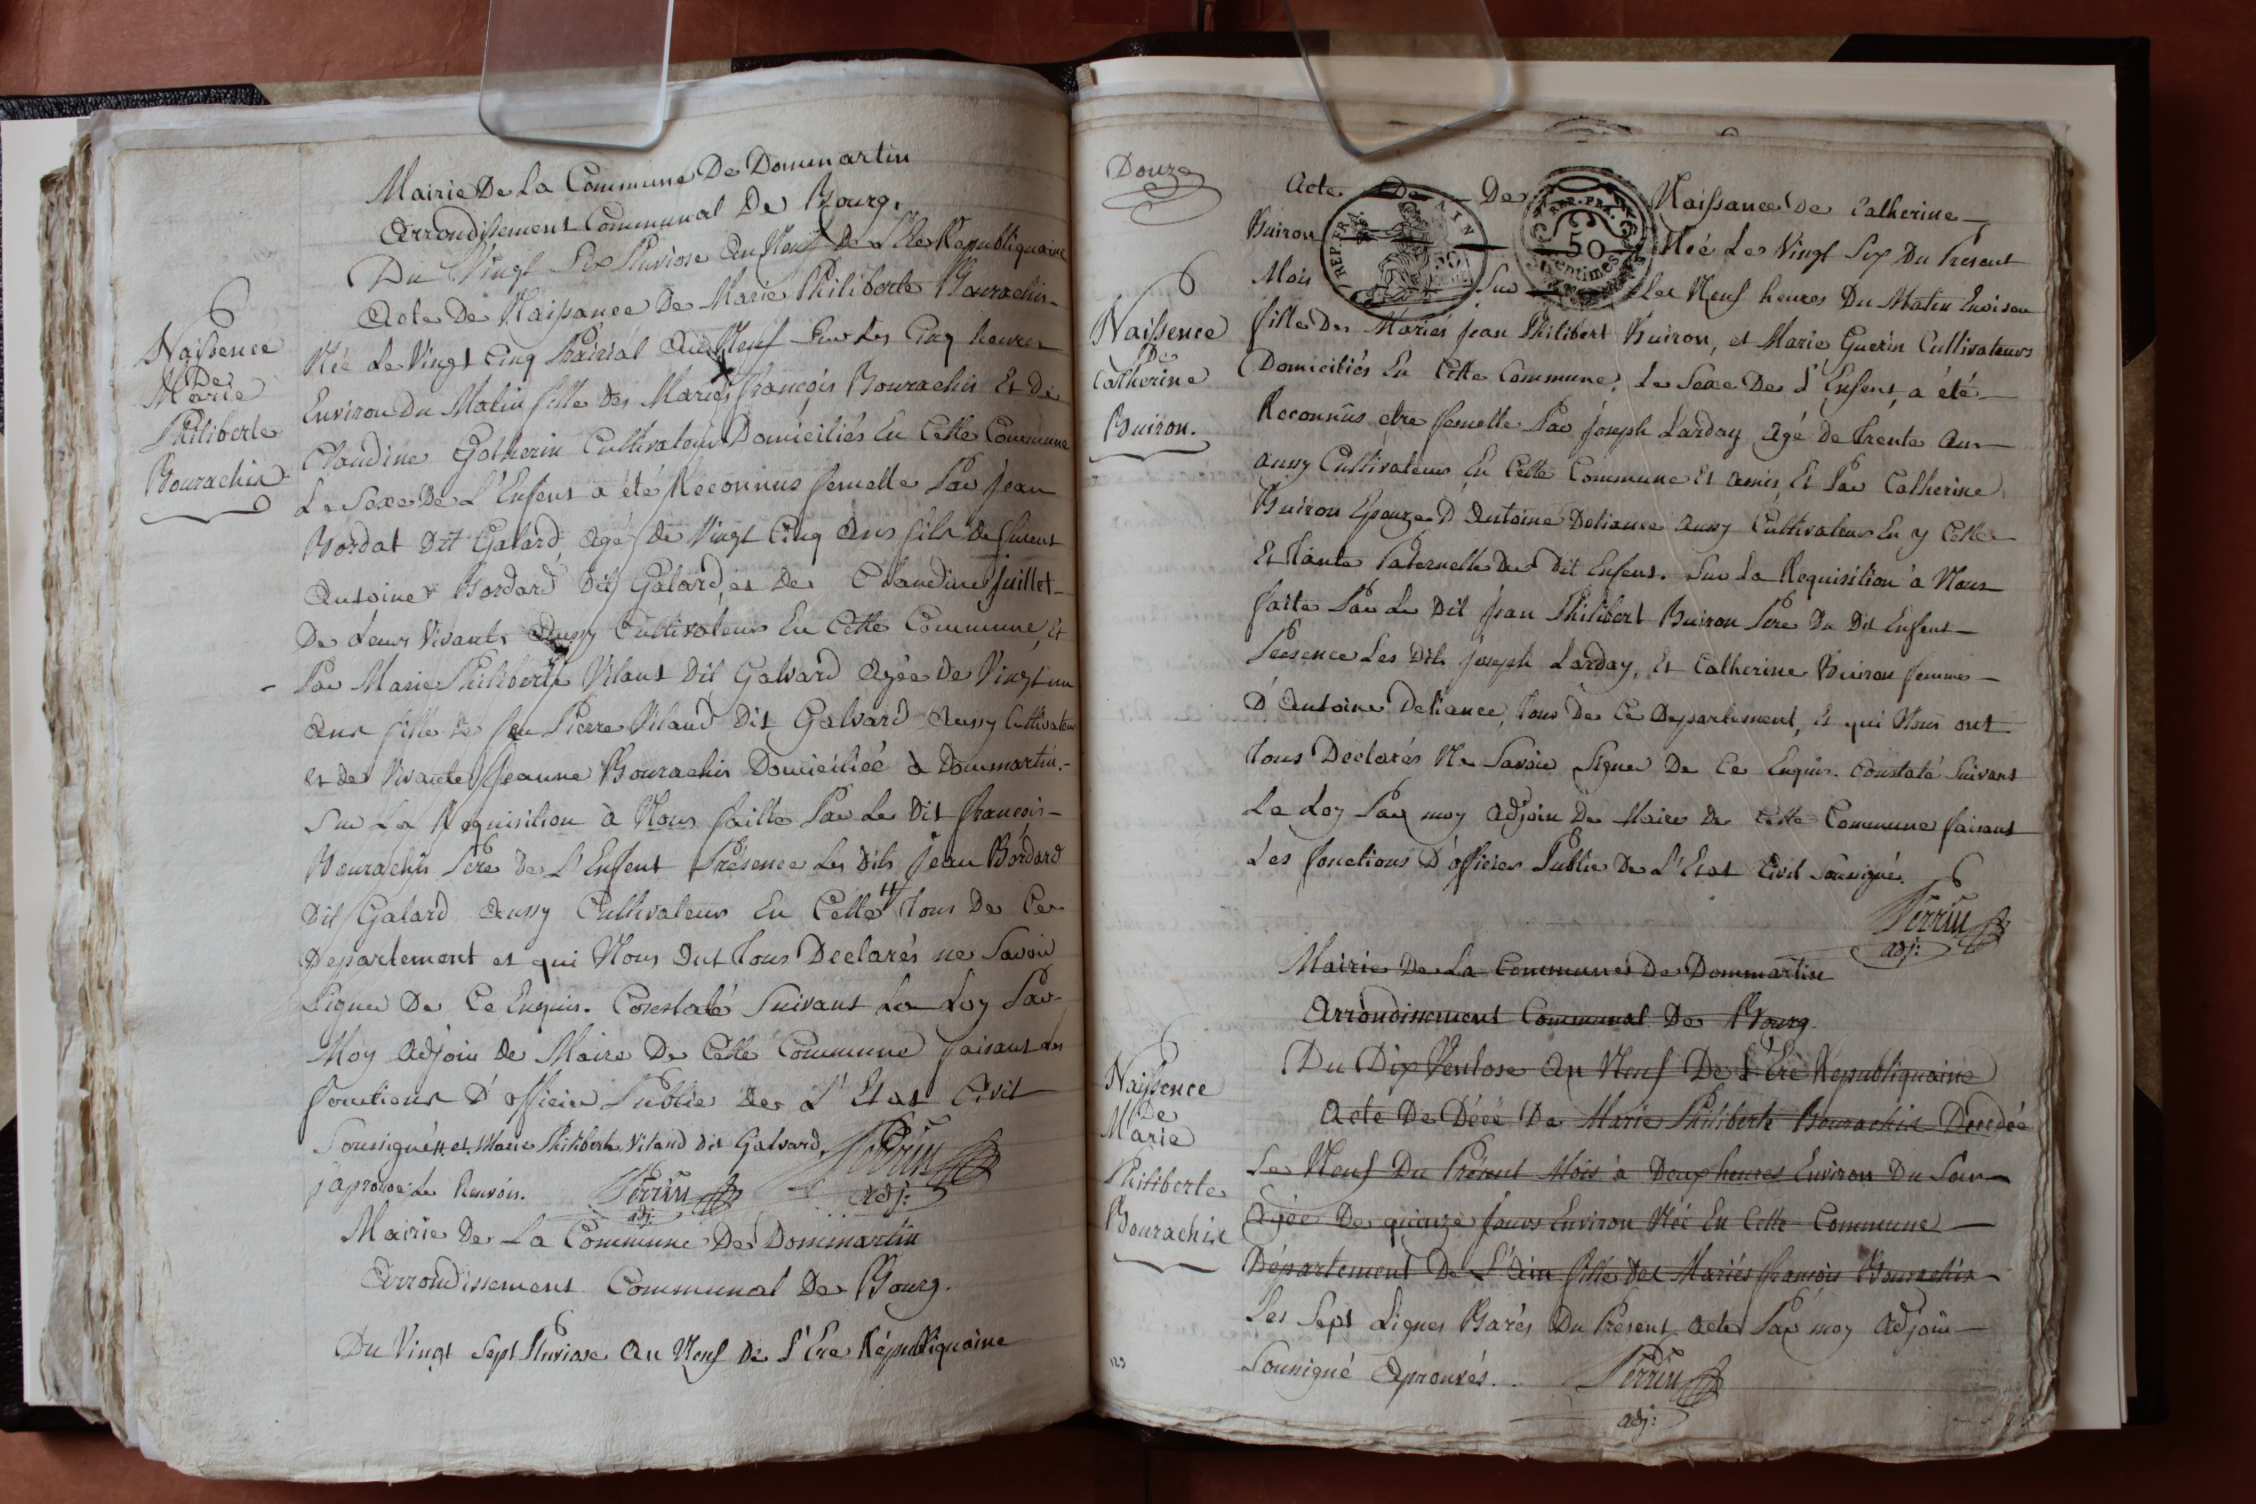 Mairie De La Commune De Dommartin
Arrondissement Communal De Bourg.
Du Vingt Six Pluviose an Neuf De L'Ere Republiquaine
Acte De Naissance De Marie Philiberte Bourachin
Née Le Vingt Cinq Prairial an Neuf Sur Les Cinq heures
Environ Du Matin fille Des Mariés françois Bourachin Et De
Claudine Gotherin Cultivateurs Domiciliés En Cette Commune
Le Sexe De L'Enfent a été Reconnus femelle Par jean
Bordat Dit Galard, agé de Vingt Cinq Ans fils de
Antoine Bordard Dit Galard, et De Claudine juillet
De Leurs Vivants Aussy Cultivateur En Cette Commune, Et
Par Marie Philiberte Vilaud Dit Galvard Agée De Vingt un
Ans fille de feu Pierre Vilaud Dit Galvard Aussy Cultivateur
et de Vivante Jeanne Bourachin Domiciliée à Dommartin.-
Sur La Requisition à Nous faitte Par Le Dit françois
Bourachin Pere De L'Enfent Présence Les Dits jean Bordard
Dit Galard Aussy Cultivateur En Cette # Tous De Ce
Departement et qui Nous Ont Tous Declarés ne Savoir
Signer De Ce Enquis. Constaté Suivant La Loy Par
Moy Adjoin De Maire De Cette Commune faisant Les
fonctions D'officier Public De L'Etat Civil
Soussigné # et Marie Philiberte Vilaud Dit Galvard. Perrin
japrouve Le Renvois. Perrin adj:
adj:
Mairie De La Commune De Dommartin
Arrondissement Communal De Bourg.
Du Vingt Sept Pluviose An Neuf De L'Ere Républiquaine
Naissence
De
Marie
Philiberte
Bourachin
Douze
Acte De De Naissance De Catherine
Buiron Née Le Vingt Six Du Présent
Mois Sur Les Neuf heures Du Matin Environ
fille Des Mariés jean Philibert Buiron, et Marie Guerin Cultivateurs
Domiciliés En Cette Commune, Le Sexe De L'Enfent, a été
Reconnûs etre femelle Par joseph Larday agé De Trente Ans
aussy Cultivateur En Cette Commune Et amis, Et Par Catherine
Buiron Epouze D'Antoine Deliance aussy Cultivateur En y Celle
Et Tante Paternelle Du Dit Enfent. Sur La Requisition à Nous
faite Par Le Dit jean Philibert Buiron Pere Du Dit Enfent
Présence Les Dits joseph Larday, Et Catherine Buiron femme
D'Antoine Deliance, Tous De Ce Departement, Et qui Nous ont
Tous Declarés Ne Savoir Signer De Ce Enquis. Constaté Suivant
La Loy Par moy Adjoin De Maire De Cette Commune faisant
Les fonctions D'officier Public De L'Etat Civil Soussigné.
Perrin
adj:
REP. FRA.
AIN
50
REP. FRA.
50
Centimes
Naissence
De
Catherine
Buiron.
Mairie De La Commune De Dommartin
Arrondissement Communal De Bourg
Du Dix Ventose An Neuf De L'Ere Republiquaine
Acte De Décé De Marie Philiberte Bourachin Decedée
Le Neuf Du Présent Mois à Deux heures Environ Du Soir
Agée De quinze jours Environ Née En Cette Commune
Département De L'Ain fille Des Mariés françois Bourachin
Les Sept Lignes Barés Du Présent Acte Par moy Adjoin
Soussigné Aprouvés. Perrin
adj:
Naissence
De
Marie
Philiberte
Bourachin
123